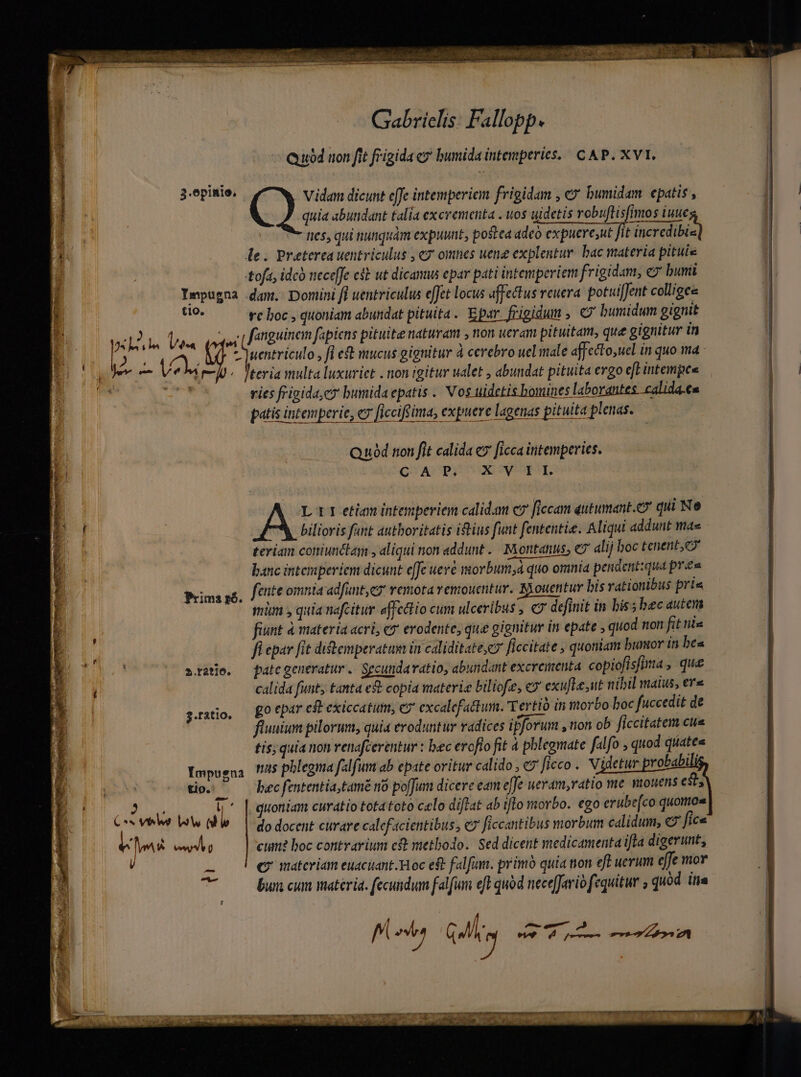 Gabrielis Fallopp.
Quòd non ſit frigida & humida intemperies. CAP. XVI.
3.opinio.
QVidam dicunt eſſe intemperiem frigidam, & humidam epatis,
quia abundant talia excrementa. uos uidetis robuſtiſsimos iuue-
nes, qui nunquàm expuunt, poſtea adeò expuere, ut ſit incredibi-
le. Præterea uentriculus, & omnes uenæ explentur hac materia pitui-
toſa, ideò neceſſe eſt ut dicamus epar pati intemperiem frigidam, & humi
Impugna
tio.
dam. Domini ſi uentriculus eſſet locus affectus reuera potuiſſent collige-
re hoc, quoniam abundat pituita. Epar frigidum, & humidum gignit
ſanguinem ſapiens pituitæ naturam, non ueram pituitam, quæ gignitur in
uentriculo, ſi eſt mucus gignitur à cerebro uel male affecto, uel in quo ma
teria multa luxuriet. non igitur ualet, abundat pituita ergo eſt intempe-
ries frigida, & humida epatis. Vos uidetis homines laborantes calida e-
patis intemperie, & ſicciſsima, expuere lagenas pituita plenas.
Quòd non ſit calida & ſicca intemperies.
CAP. XVII.
ALII etiam intemperiem calidam & ſiccam autumant. & qui No
bilioris ſunt authoritatis iſtius ſunt ſententiæ. Aliqui addunt ma-
teriam coniunctam, aliqui non addunt. Montanus, & alij hoc tenent, &
hanc intemperiem dicunt eſſe uere morbum, à quo omnia pendent: qua præ-
Prima rõ.
ſente omnia adſunt, & remota remouentur. Mouentur his rationibus pri-
mùm, quia naſcitur affectio cum ulceribus, & definit in his; hæc autem
fiunt à materia acri, & erodente, quæ gignitur in epate, quod non fit ni-
ſi epar ſit diſtemperatum in caliditate, & ſiccitate, quoniam humor in he-
2.ratio.
pate generatur. Secunda ratio, abundant excrementa copioſiſsima, quæ
calida ſunt, tanta eſt copia materiæ bilioſæ, & exuſtæ, ut nihil maius, er-
3.ratio.
go epar eſt exiccatum, & excalefactum. Tertiò in morbo hoc ſuccedit de
fluuium pilorum, quia eroduntur radices ipſorum, non ob ſiccitatem cu-
tis; quia non renaſcerentur: hæc eroſio fit à phlegmate ſalſo, quod quate-
Impugna
tio.
nus phlegma ſalſum ab epate oritur calido, & ſicco. Videtur probabilis
hæc ſententia, tamẽ nõ poſſum dicere eam eſſe ueram, ratio me mouens eſt,
quoniam curatio tota toto cælo diſtat ab iſto morbo. ego erubeſco quomo-
do docent curare calefacientibus, & ſiccantibus morbum calidum, & ſic-
cum? hoc contrarium eſt methodo. Sed dicent medicamenta iſta digerunt,
& materiam euacuant. Hoc eſt falſum. primò quia non eſt uerum eſſe mor
bum cum materia. ſecundum falſum eſt quòd neceſſariò ſequitur, quòd in-